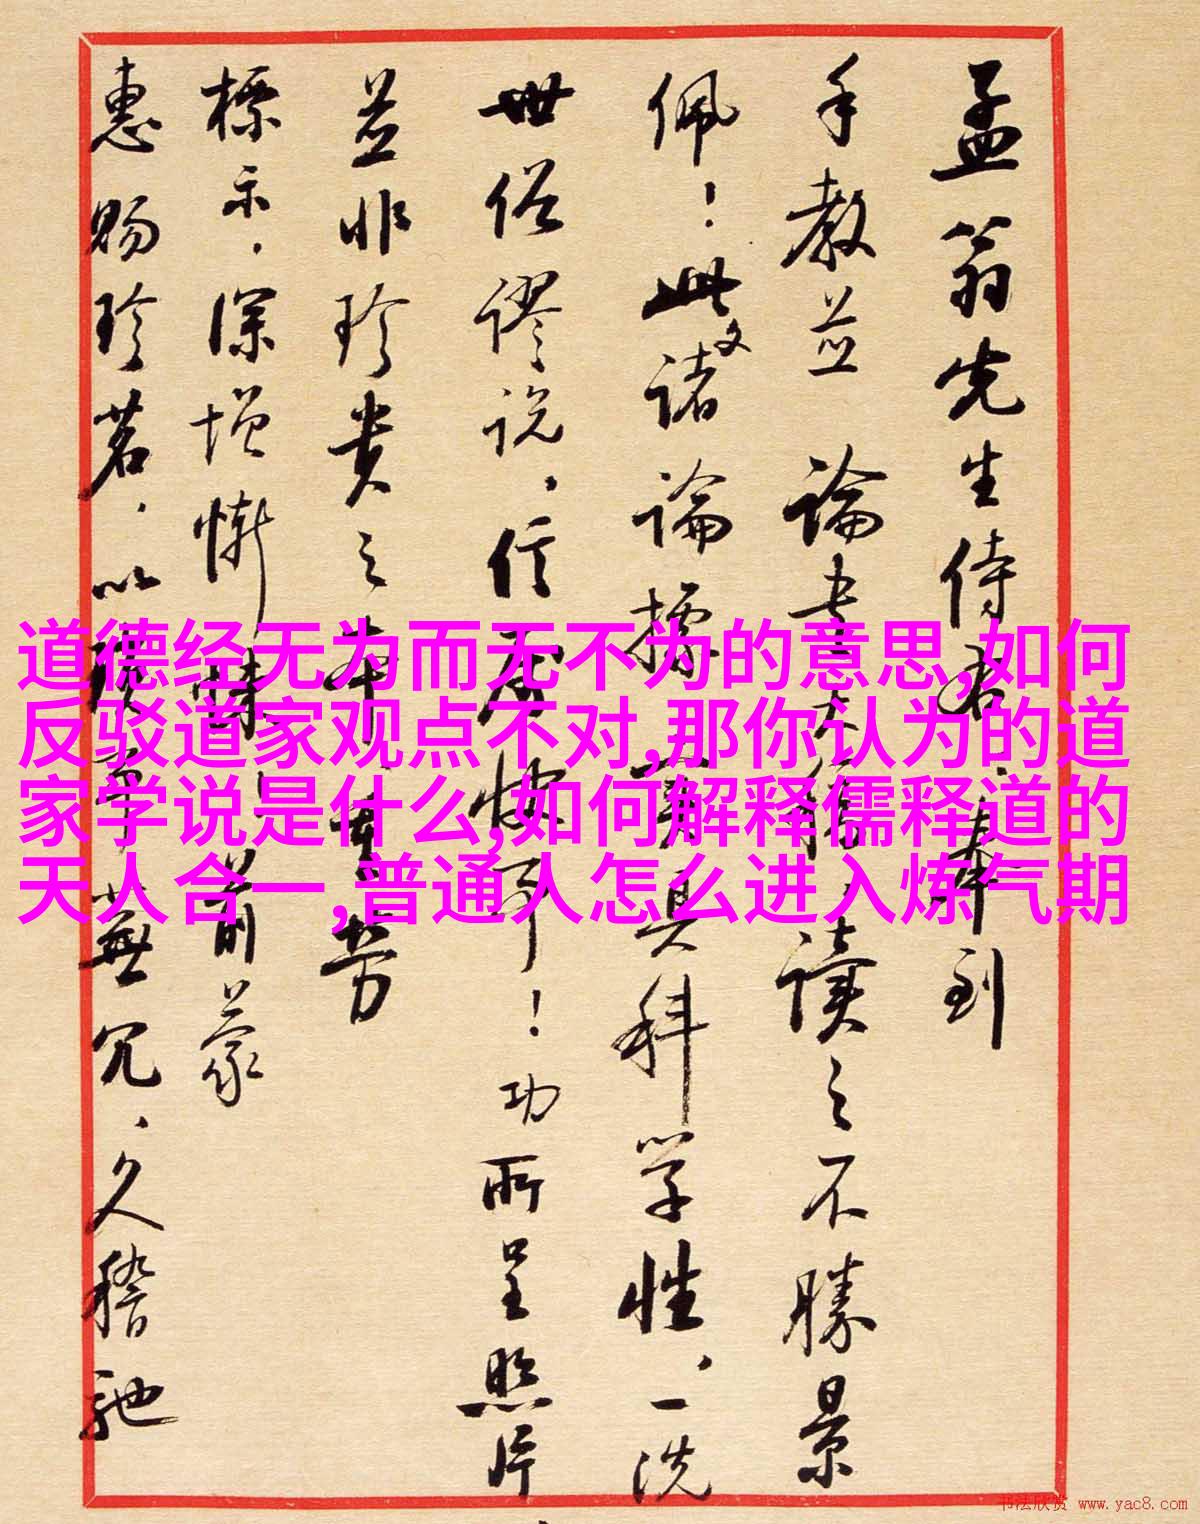 孟翁先生侍右、奉到
手教并 论書大作、读之不勝景
佩！此文诸论據审具科学性、一洗
世俗谬说、信为快事！功所呈照片
并非珍贵之本、重劳
標示、深增慚悚、前蒙
惠赐珍茗、以琐事蕪冗、久稽馳
道德经无为而无不为的意思,如何
反驳道家观点不对,那你认为的道
家学说是什么,如何解释儒释道的
天人合一,普通人怎么进入炼气期
书法欣赏 www.yac8.com